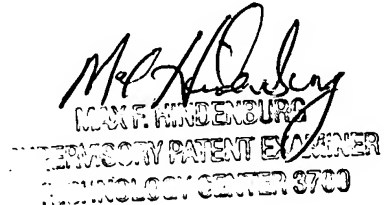 Max Hindenburg
MAX F. HINDENBURG
SUPERVISORY PATENT EXAMINER
TECHNOLOGY CENTER 3700